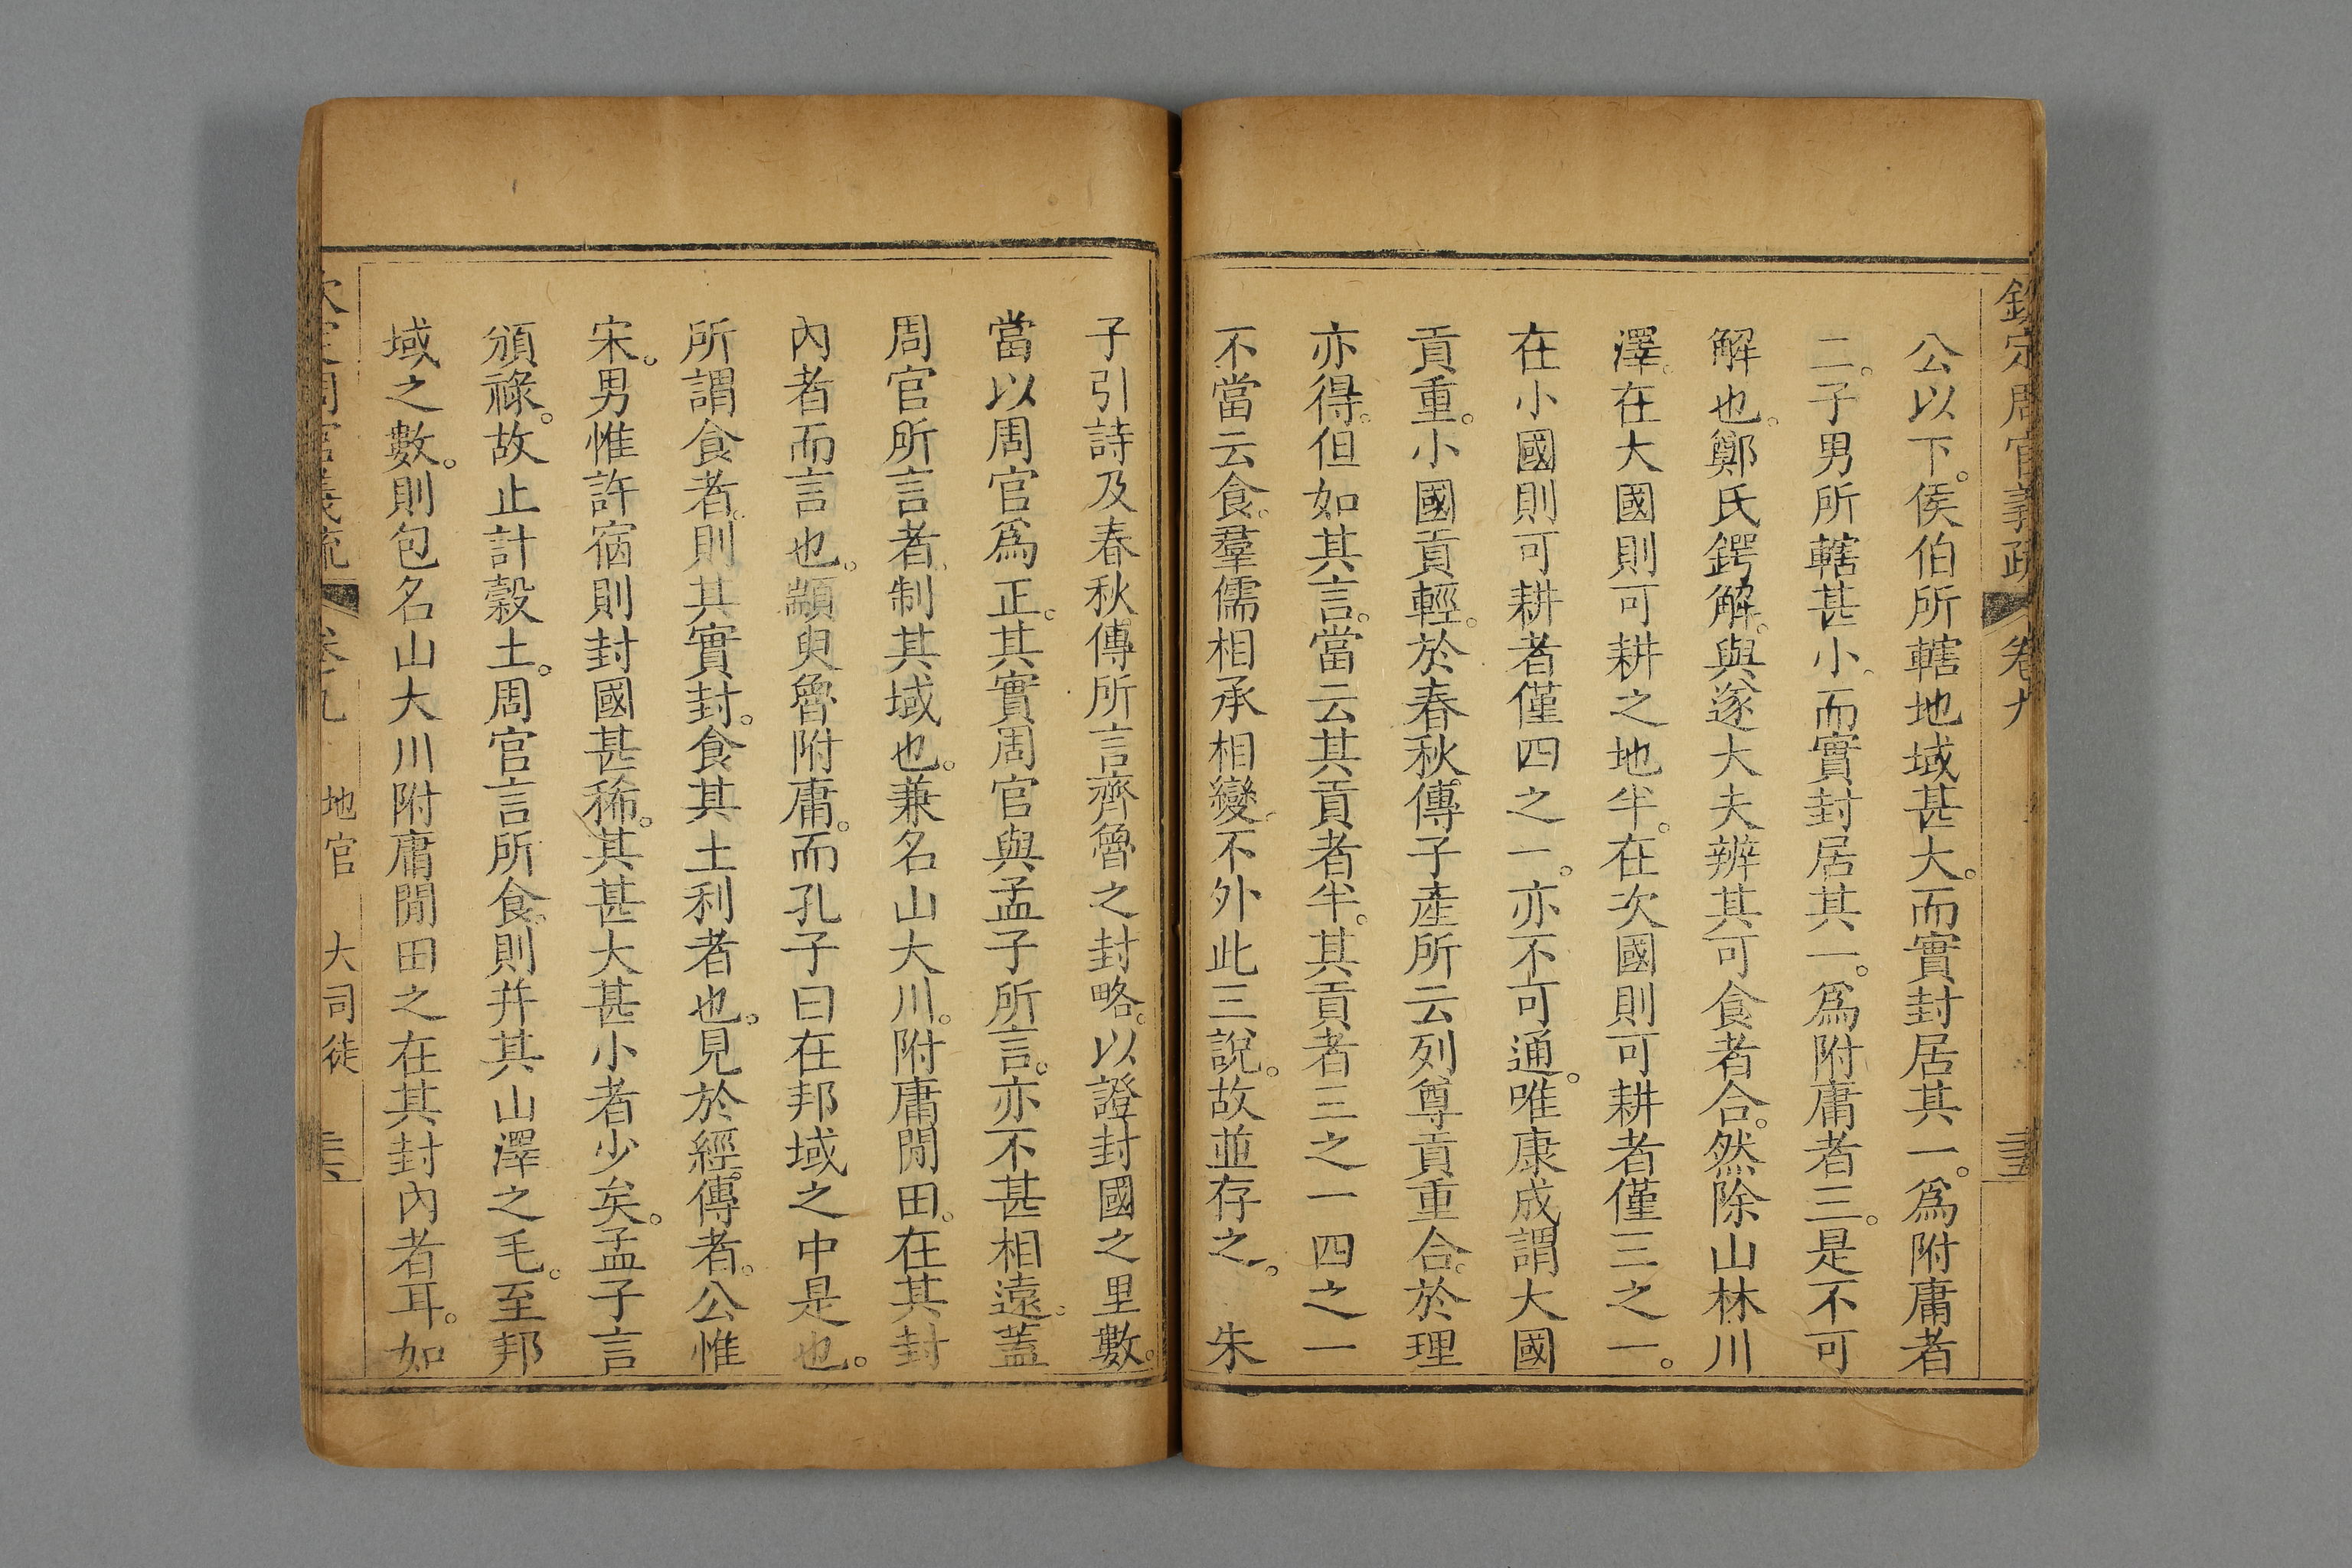 欽定周官義疏 卷九
公以下。侯伯所轄地域甚大。而實封居其一。爲附庸者
二。子男所轄甚小、而實封居其一。爲附庸者三。是不可
解也。鄭氏鍔解。與遂大夫辨其可食者合。然除山林川
澤。在大國則可耕之地半。在次國則可耕者僅三之一。
在小國則可耕者僅四之一。亦不可通。唯康成謂大國
貢重。小國貢輕。於春秋傳子產所云列尊貢重合。於理
亦得。但如其言。當云其貢者半。其貢者三之一四之一
不當云食。羣儒相承相變、不外此三說。故並存之。 朱
子引詩及春秋傳所言齊魯之封略。以證封國之里數。
當以周官爲正。其實周官與孟子所言。亦不甚相遠。蓋
周官所言者、制其域也。兼名山大川。附庸閒田。在其封
內者而言也。顓臾魯附庸。而孔子曰在邦域之中是也。
所謂食者。則其實封。食其土利者也。見於經。傳者。公惟
宋。男惟許宿則封國甚稀。其甚大甚小者少矣。孟子言
頒祿。故止計穀土。周官言所食。則幷其山澤之毛。至邦
域之數。則包名山大川附庸閒田之在其封內者耳。如
地官 大司徒